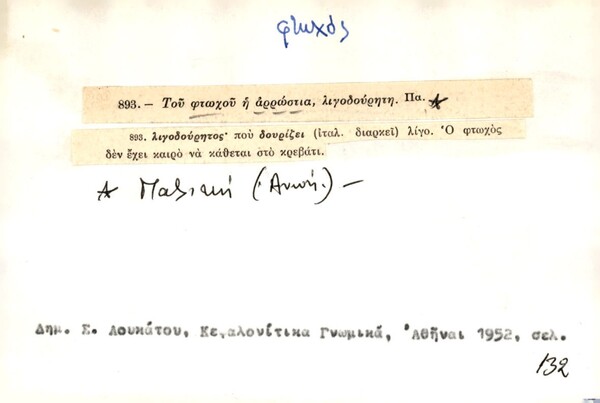 φτωχός
893. — Τοῦ φτωχοῦ ἡ ἀρρώστια, λιγοδούρητη. Πα.
893. λιγοδούρητος· ποὺ δουρίζει (ἰταλ. διαρκεῖ) λίγο. Ὁ φτωχὸς
δὲν ἔχει καιρὸ νὰ κάθεται στὸ κρεβάτι.
(Ἀνωή.) —
Δημ. Σ. Λουκάτου, Κεφαλονίτικα Γνωμικά, Ἀθῆναι 1952, σελ.
132